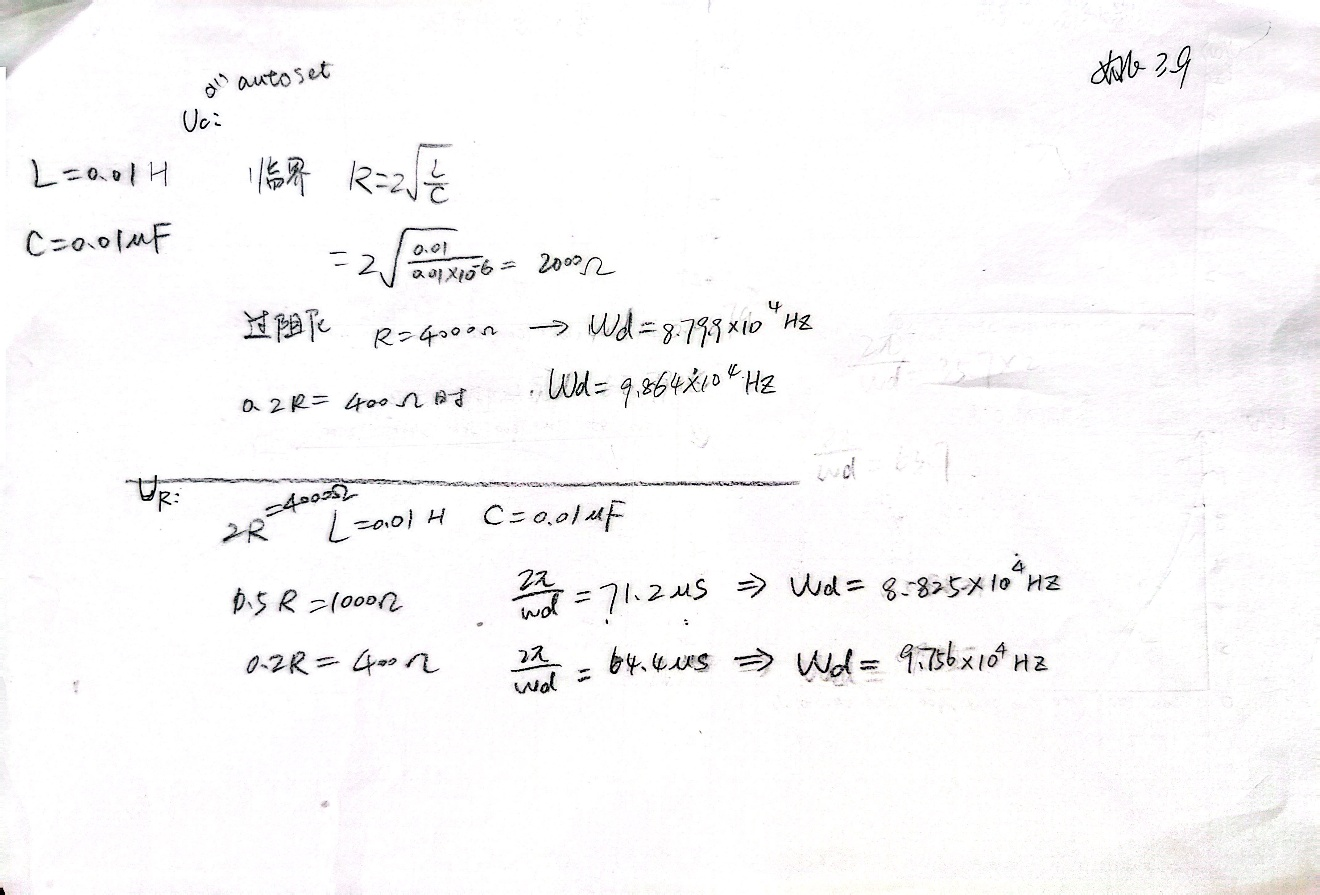 autoset
3.9
Uc:
L=0.01H 临界 R=2√(L/C)
C=0.01μF =2√(0.01/0.01×10⁻⁶) = 2000Ω
过阻尼 R=4000Ω → Wd=8.799×10⁴Hz
0.2R=400Ω时 Wd=9.864×10⁴Hz
UR:
2R=4000Ω L=0.01H C=0.01μF
0.5R=1000Ω 2π/wd=71.2μs ⇒ Wd=8.825×10⁴Hz
0.2R=400Ω 2π/wd=64.4μs ⇒ Wd=9.756×10⁴Hz